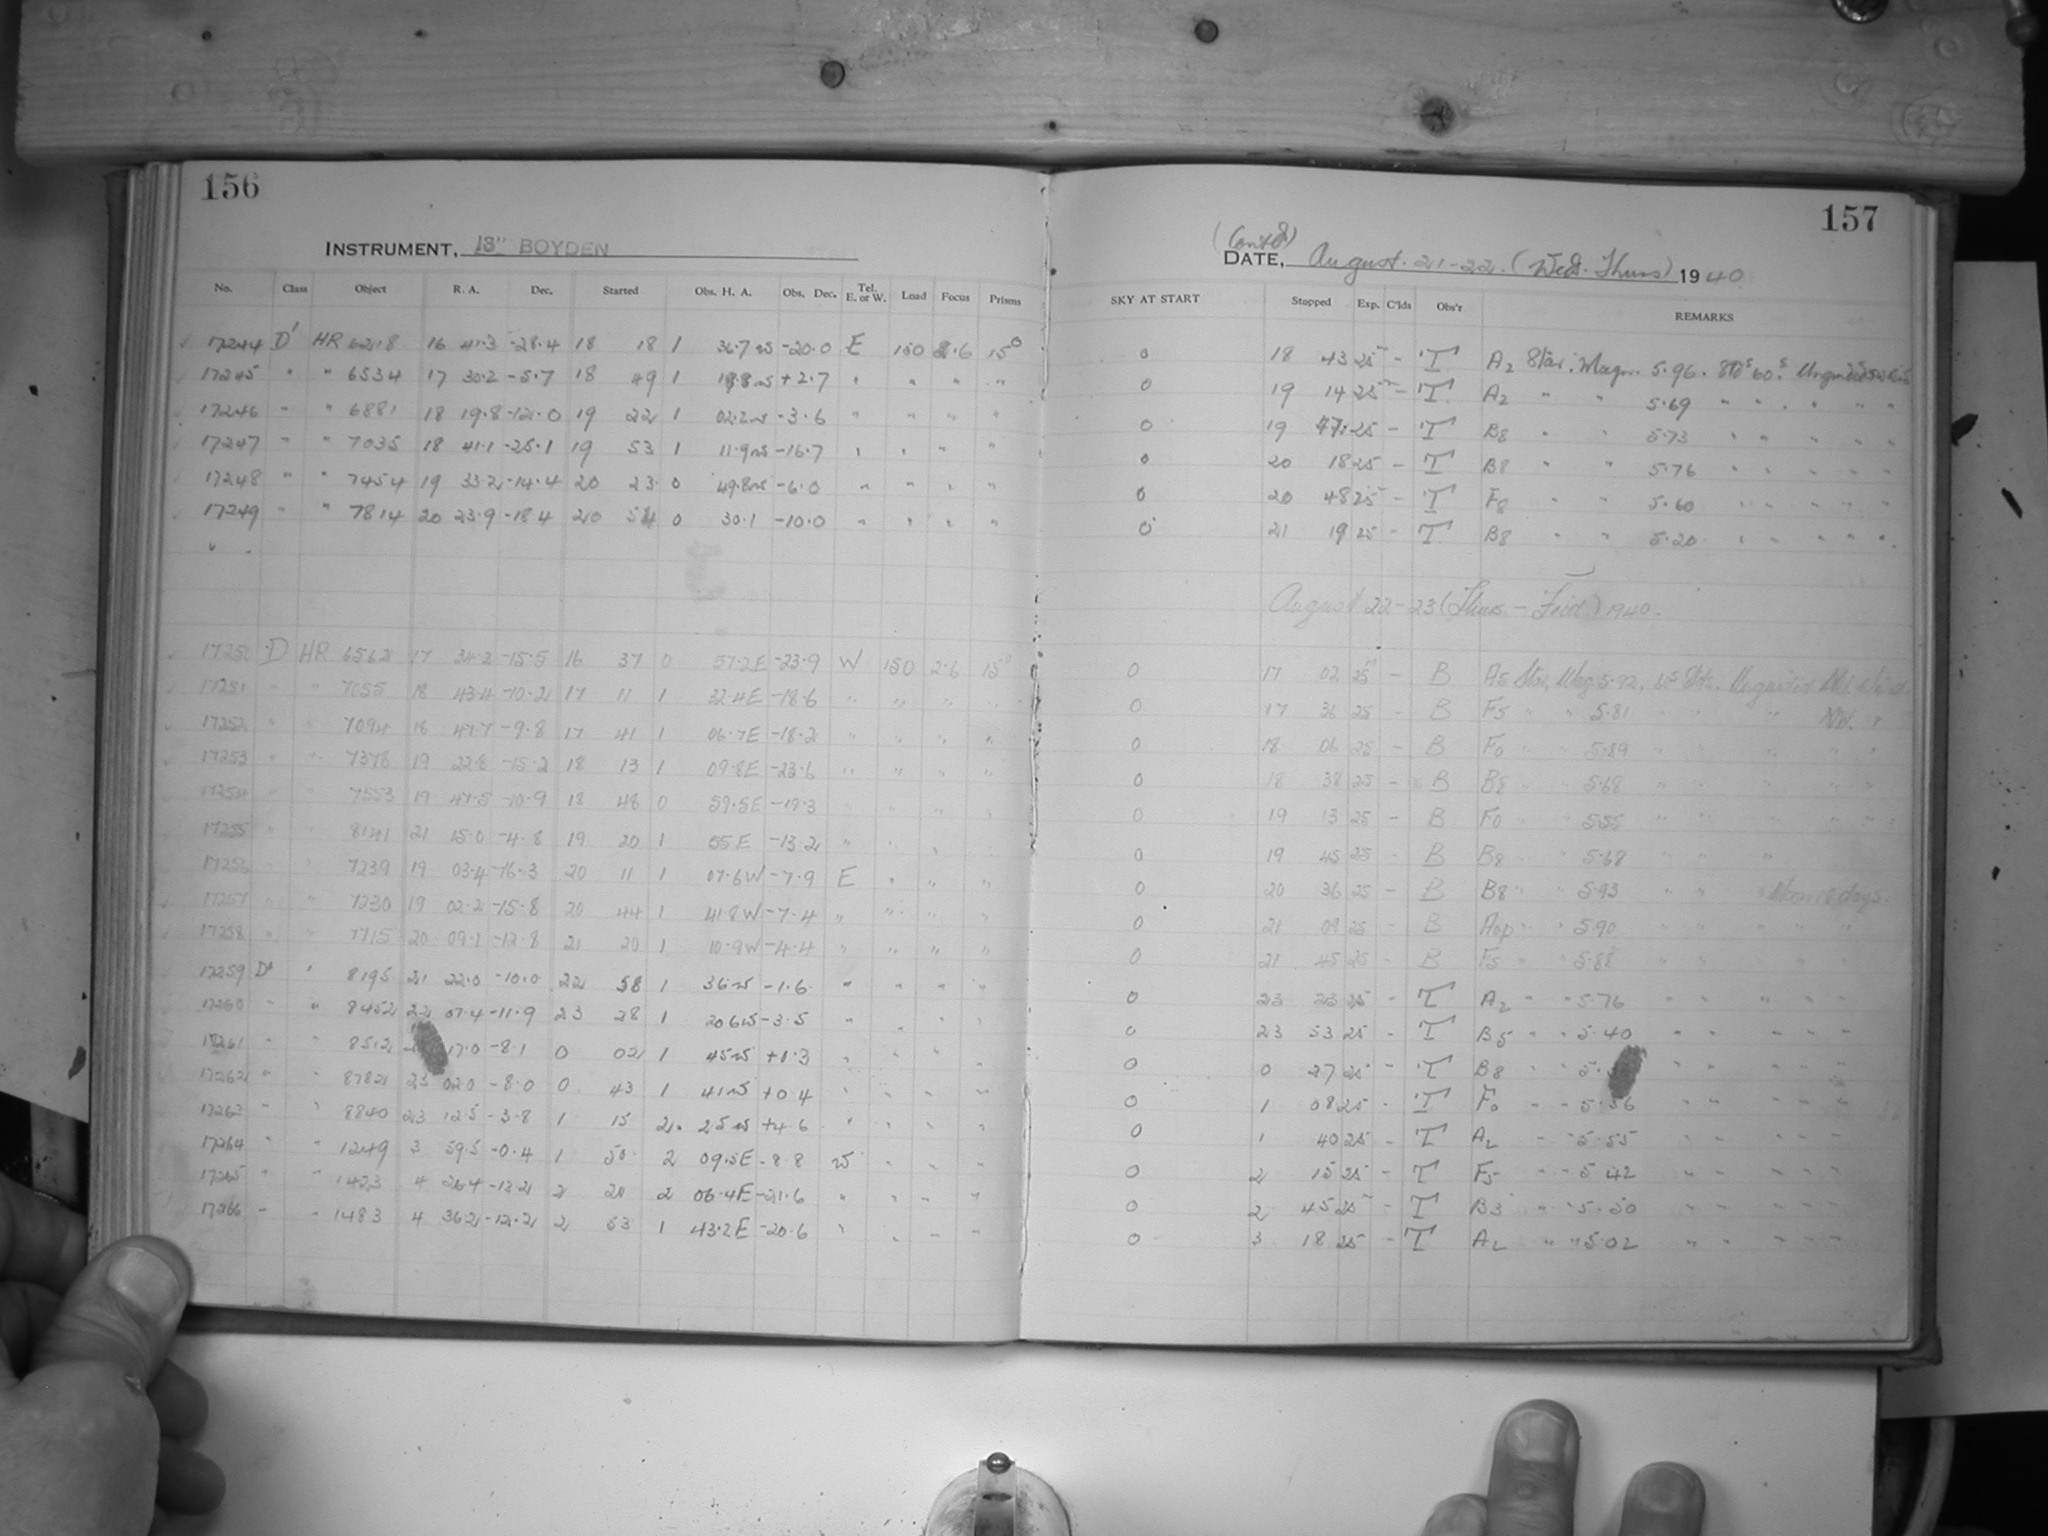 156
157
INSTRUMENT, 13" BOYDEN
(Cont'd)
DATE, August 21-22. (Wed. Thurs) 1940.
No. Class Object R. A. Dec. Started Obs. H. A. Obs. Dec. Tel. E. or W. Load Focus Prisms SKY AT START Stopped Exp. C'lds Obs'r REMARKS
17244 D' HR 6218 16 41.3 -28.4 18 18 1 36.7 W -20.0 E 150 2.6 15° 0 18 43 25 - T A2 Star. Magn. 5.96.
17245 " " 6534 17 30.2 -5.7 18 49 1 19.8 W +2.7 " " " " 0 19 14 25 - T A2 " " 5.69 " " " " "
17246 " " 6881 18 19.8 -12.0 19 22 1 02.2 W -3.6 " " " " 0 19 47 25 - T B8 " " 5.73 " " " " "
17247 " " 7035 18 41.1 -25.1 19 53 1 11.9 W -16.7 " " " " 0 20 18 25 - T B8 " " 5.76 " " " " "
17248 " " 7454 19 33.2 -14.4 20 23 0 49.8 W -6.0 " " " " 0 20 48 25 - T F8 " " 5.60 " " " " "
17249 " " 7814 20 23.9 -18.4 20 54 0 30.1 -10.0 " " " " 0 21 19 25 - T B8 " " 5.20 " " " " "
August 22-23 (Thurs - Frid) 1940.
17250 D HR 6562 17 34.2 -15.5 16 37 0 57.2E -23.9 W 150 2.6 15° 0 17 02 25 - B A5 Star, Mag. 5.92,
17251 " " 7055 18 43.4 -10.2 17 11 1 32.4E -18.6 " " " " 0 17 36 25 - B F5 " " 5.81 " " " NW. "
17252 " " 7094 18 47.7 -9.8 17 41 1 06.7E -18.2 " " " " 0 18 06 25 - B F0 " " 5.89 " " " " "
17253 " " 7378 19 22.8 -15.2 18 13 1 09.8E -23.6 " " " " 0 18 38 25 - B B8 " " 5.68 " " " " "
17254 " " 7553 19 47.5 -10.9 18 48 0 59.5E -19.3 " " " " 0 19 13 25 - B F0 " " 5.55 " " " " "
17255 " " 8141 21 15.0 -4.8 19 20 1 55E -13.2 " " " " 0 19 45 25 - B B8 " " 5.68 " " "
17256 " " 7239 19 03.4 -16.3 20 11 1 07.6W -7.9 E " " " 0 20 36 25 - B B8 " " 5.93 " " " Moon 18 days.
17257 " " 7230 19 02.2 -15.8 20 44 1 41.8W -7.4 " " " " 0 21 09 25 - B A0p " " 5.90 " " " " "
17258 " " 7715 20 09.1 -12.8 21 20 1 10.9W -4.4 " " " " 0 21 45 25 - B F5 " " 5.88 " " " " "
17259 D' " 8195 21 22.0 -10.0 22 58 1 36 W -1.6 " " " " 0 23 23 25 - T A2 " " 5.76 " " " " "
17260 " " 8452 22 07.4 -11.9 23 28 1 20.6W -3.5 " " " " 0 23 53 25 - T B5 " " 5.40 " " " " "
17261 " " 8512 17.0 -8.1 0 02 1 45W +0.3 " " " " 0 0 27 25 - T B8 " " " " " " "
17262 " " 8782 23 02.0 -8.0 0 43 1 41W +0.4 " " " " 0 1 08 25 - T F0 " " 5.56 " " " " "
17263 " " 8840 23 12.5 -3.8 1 15 2 25W +4.6 " " " " 0 1 40 25 - T A2 " " 5.55 " " " " "
17264 " " 1249 3 59.5 -0.4 1 50 2 09.5E -8.8 W " " " 0 2 15 25 - T F5 " " 5.42 " " " " "
17265 " " 1423 4 26.4 -13.2 2 20 2 06.4E -21.6 " " " " 0 2 45 25 - T B3 " " 5.50 " " " " "
17266 " " 1483 4 36.2 -12.2 2 53 1 43.2E -20.6 " " " " 0 3 18 25 - T A2 " " 5.02 " " " " "